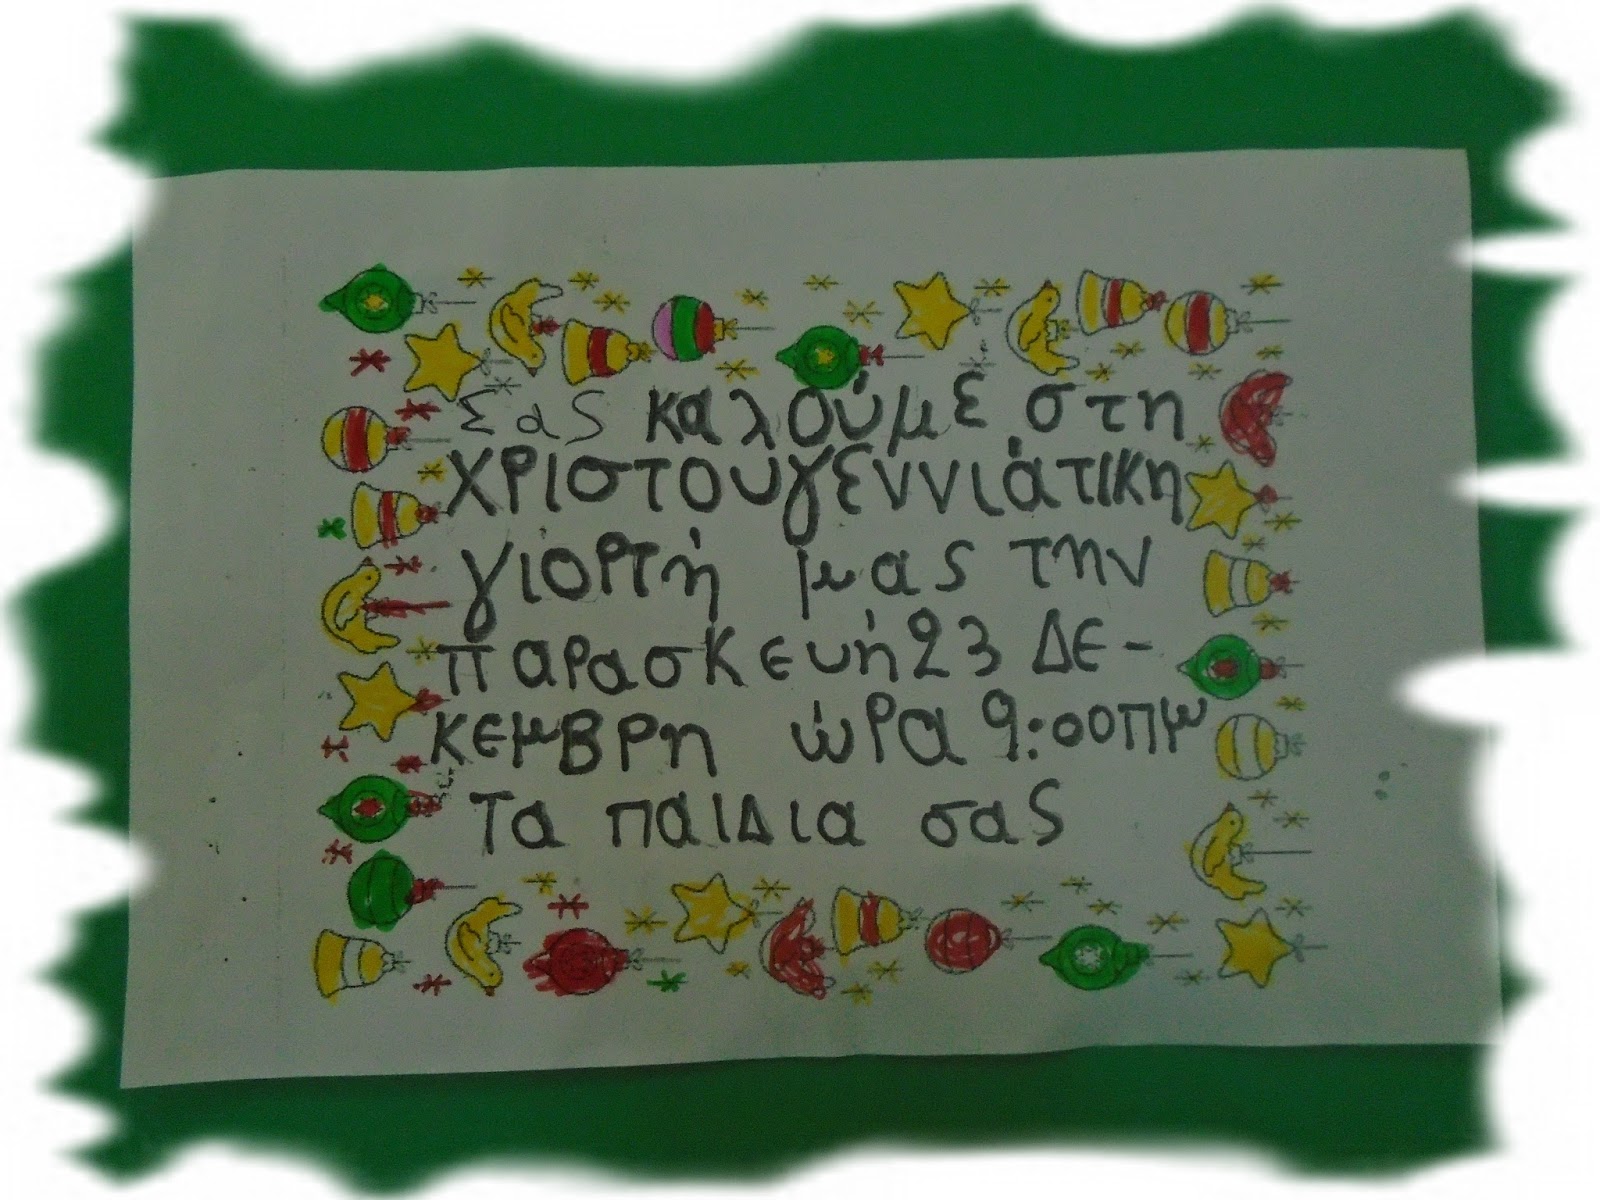 Σας καλούμε στη
χριστουγεννιάτικη
γιορτή μας την
παρασκευή 23 Δε-
κεμβρη ώρα 9:00πμ
Τα παιδια σας